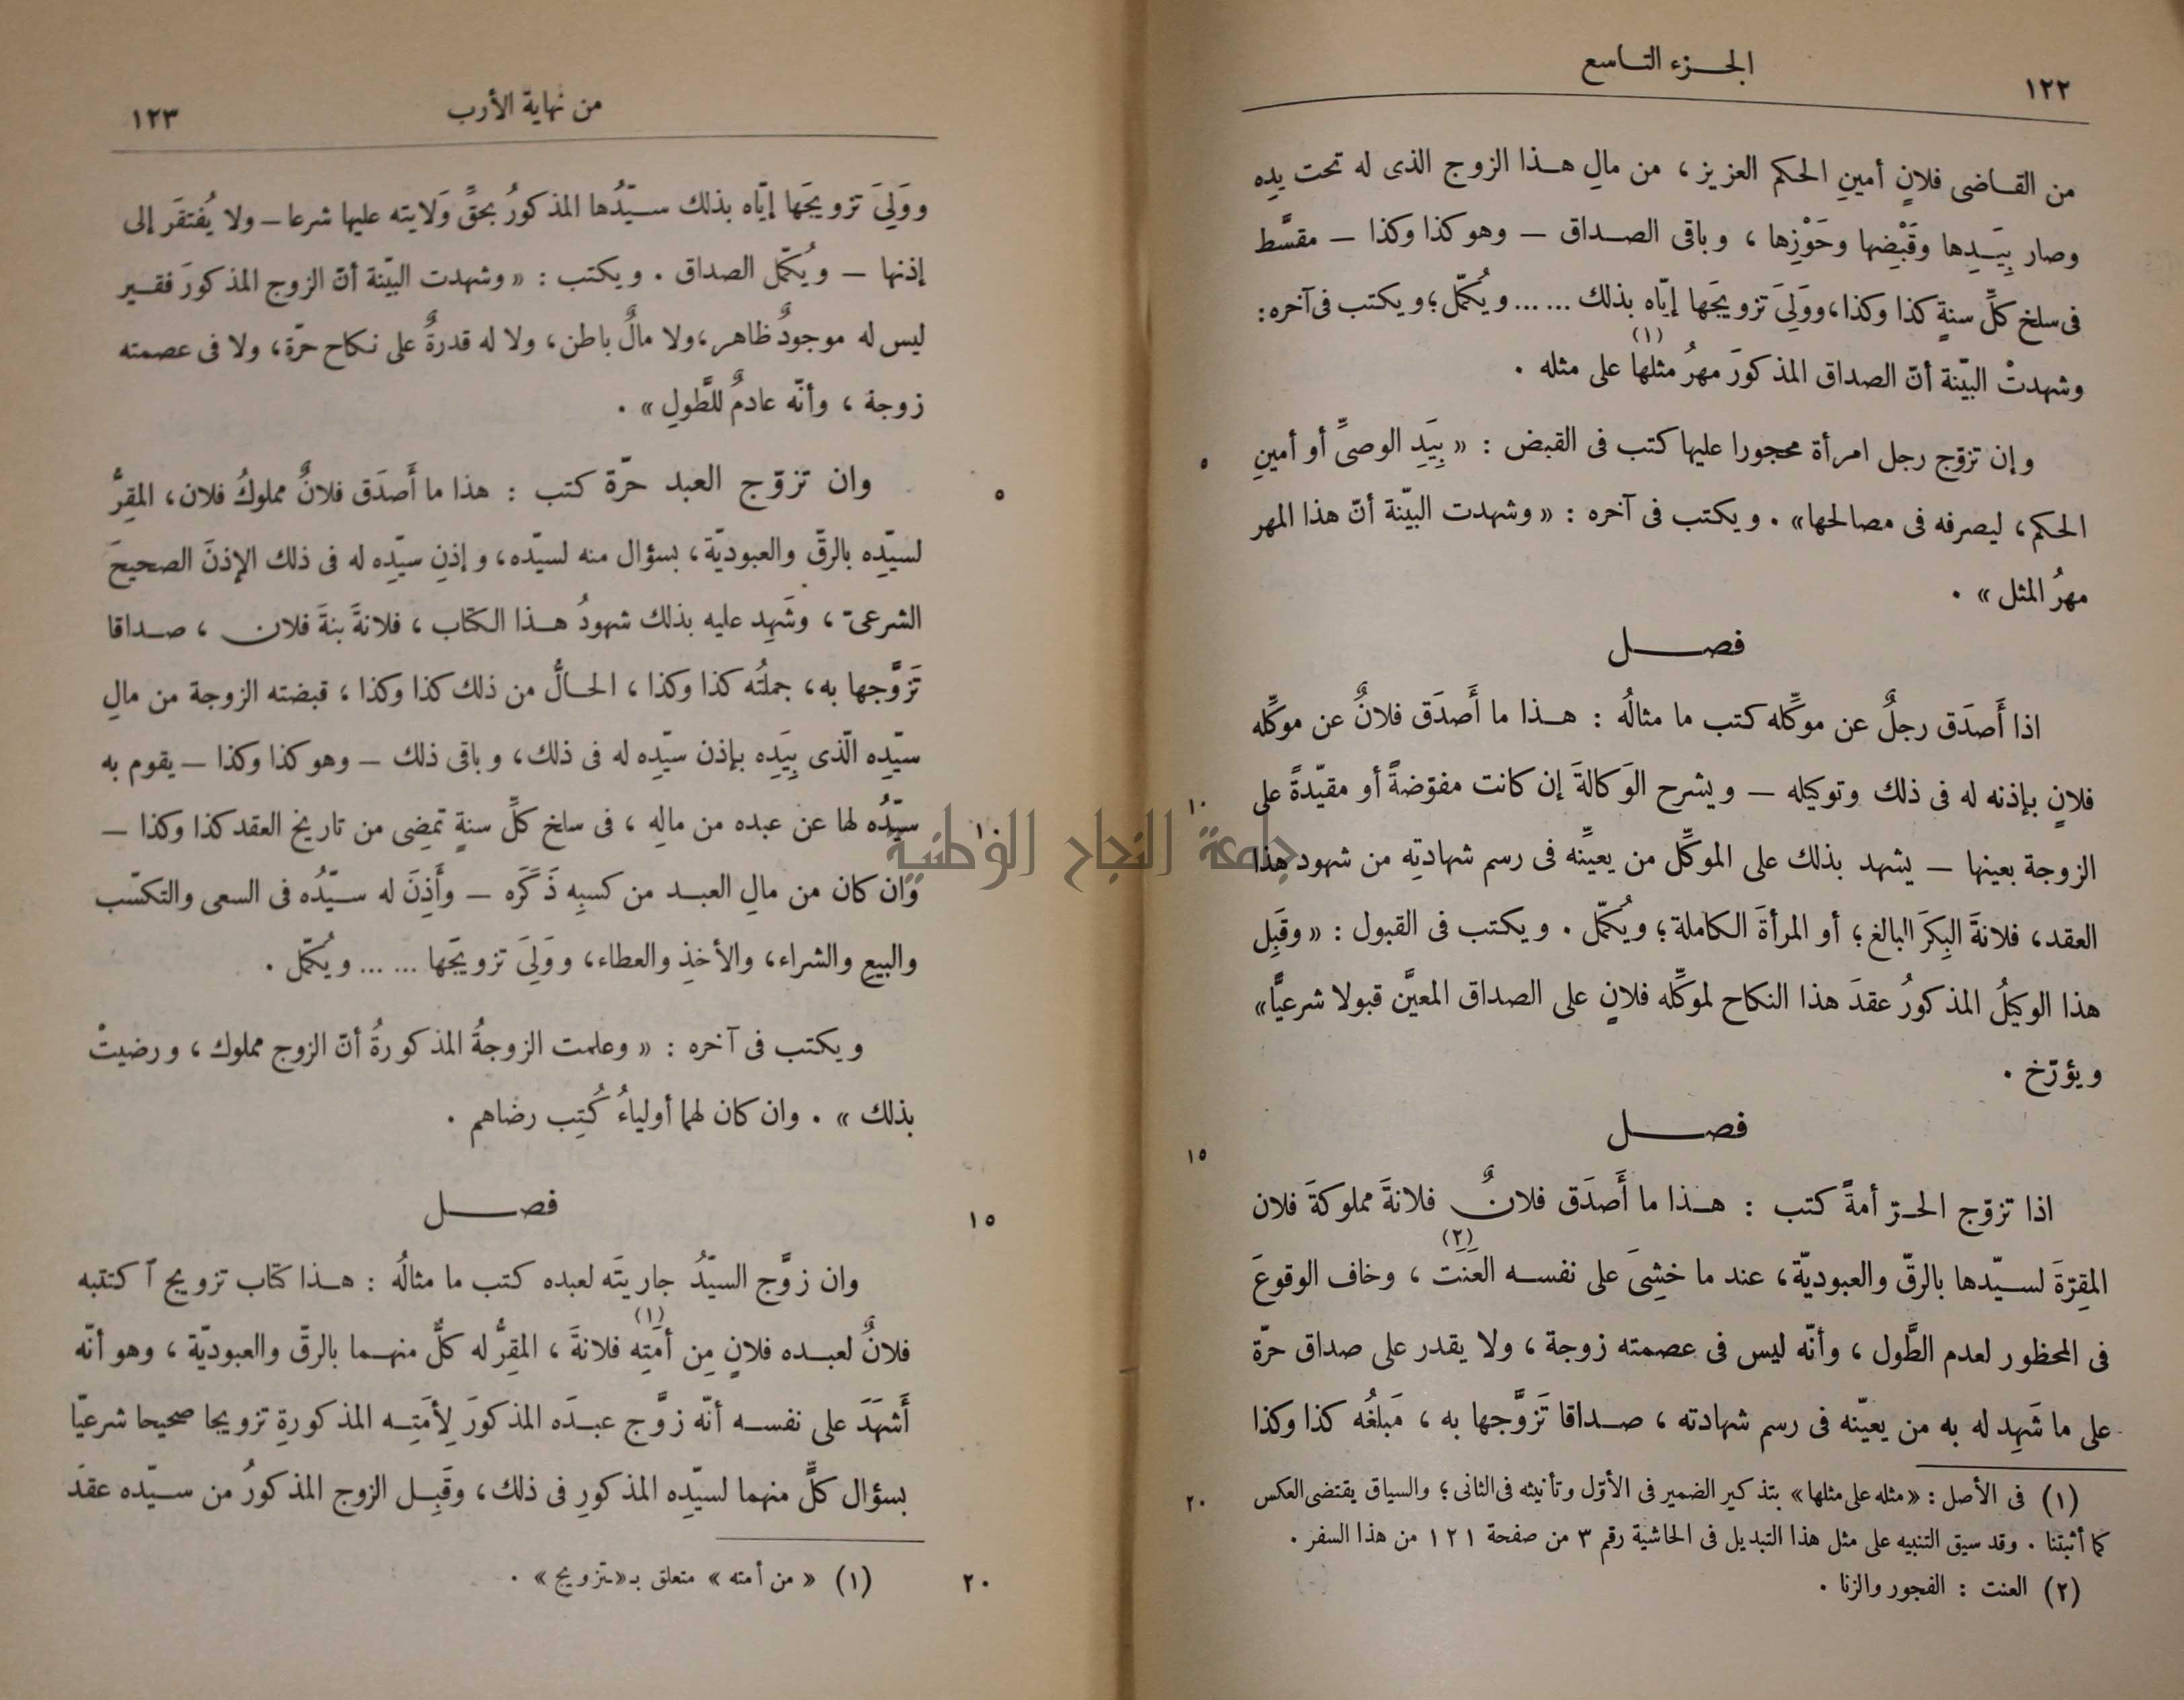 ١٢٢
الجزء التاسع
من القاضى فلانٍ أمينِ الحكم العزيز، من مالِ هذا الزوج الذى له تحت يدِه
وصار بِيَدِها وقَبْضِها وحَوْزِها، وباقى الصداق — وهو كذا وكذا — مقسَّط
فى سلخ كلِّ سنةٍ كذا وكذا، ووَلِىَ تزويجَها إيّاه بذلك ... ... ويُكمَّل؛ ويكتب فى آخره:
وشهدتْ البيّنة أنّ الصداق المذكورَ مهرُ مثلها (١) على مثله .
وإن تزوّج رجل امرأة محجورا عليها كتب فى القبض : « بِيَدِ الوصىِّ أو أمينِ
٥
الحكم، ليصرفه فى مصالحها» . ويكتب فى آخره : « وشهدت البيّنة أنّ هذا المهر
مهرُ المثل » .
فصل
اذا أَصدَق رجلٌ عن موكِّله كتب ما مثالُه : هذا ما أَصدَق فلانٌ عن موكِّله
فلانٍ بإذنه له فى ذلك وتوكيله — ويشرح الوَكالةَ إن كانت مفوّضةً أو مقيّدةً على
١٠
الزوجة بعينها — يشهد بذلك على الموكِّل من يعيِّنه فى رسم شهادتِه من شهود هذا
العقد، فلانةَ البِكرَ البالغ؛ أو المرأةَ الكاملة؛ ويُكمّل . ويكتب فى القبول : « وقَبِل
هذا الوكيلُ المذكورُ عقدَ هذا النكاح لموكِّله فلانٍ على الصداق المعيَّن قبولا شرعيًّا»
ويؤرّخ .
فصل
١٥
اذا تزوّج الحرّ أمةً كتب : هذا ما أَصدَق فلانٌ فلانةَ مملوكةَ فلان
المقِرّةَ لسيّدها بالرقّ والعبوديّة، عند ما خشِىَ على نفسه العَنَت (٢) ، وخاف الوقوعَ
فى المحظور لعدم الطَّول، وأنّه ليس فى عصمته زوجة، ولا يقدر على صداق حرّة
على ما شَهِد له به من يعيّنه فى رسم شهادته، صداقا تَزوَّجها به، مَبلغُه كذا وكذا
(١) فى الأصل : «مثله على مثلها» بتذكير الضمير فى الأوّل وتأنيثه فى الثانى؛ والسياق يقتضى العكس
٢٠
كما أثبتنا . وقد سبق التنبيه على مثل هذا التبديل فى الحاشية رقم ٣ من صفحة ١٢١ من هذا السفر .
(٢) العنت : الفجور والزنا .
من نهاية الأرب
١٢٣
ووَلِىَ تزويجَها إيّاه بذلك سيّدُها المذكورُ بحقِّ وَلايته عليها شرعا — ولا يُفتقَر إلى
إذنها — ويُكمّل الصداق . ويكتب : « وشهدت البيّنة أنّ الزوج المذكورَ فقير
ليس له موجودٌ ظاهر، ولا مالٌ باطن، ولا له قدرةٌ على نكاح حرّة، ولا فى عصمته
زوجة، وأنّه عادمٌ للطَّولِ» .
وان تزوّج العبد حرّة كتب : هذا ما أَصدَق فلانٌ مملوكُ فلان، المقِرُّ
٥
لسيّدِه بالرقّ والعبوديّة، بسؤال منه لسيّده، وإذنِ سيّدِه له فى ذلك الإذنَ الصحيحَ
الشرعىّ، وشَهِد عليه بذلك شهودُ هذا الكتاب، فلانةَ بنةَ فلان، صداقا
تَزوَّجها به، جملتُه كذا وكذا، الحالُّ من ذلك كذا وكذا، قبضته الزوجة من مالِ
سيّدِه الّذى بِيَدِه بإذن سيّدِه له فى ذلك، وباقى ذلك — وهو كذا وكذا — يقوم به
سيّدُه لها عن عبده من مالِه، فى سلخ كلِّ سنةٍ تمضِى من تاريخ العقد كذا وكذا —
١٠
وان كان من مالِ العبد من كسبِه ذَكَرَه — وأَذِنَ له سيّدُه فى السعى والتكسّب
والبيع والشراء، والأخذِ والعطاء، ووَلِىَ تزويجَها ... ... ويُكمّل .
ويكتب فى آخره : « وعلمت الزوجةُ المذكورةُ أنّ الزوج مملوك، ورضيتْ
بذلك » . وان كان لهما أولياءُ كُتِب رضاهم .
فصل
١٥
وان زوَّج السيّدُ جاريتَه لعبده كتب ما مثالُه : هذا كتاب تزويج ٱكتتبه
فلانٌ لعبده فلانٍ مِن أمَتِه (١) فلانةَ، المقِرُّ له كلٌّ منهما بالرقّ والعبوديّة، وهو أنّه
أَشهَدَ على نفسه أنّه زوَّج عبدَه المذكورَ لِأمَتِه المذكورةِ تزويجا صحيحا شرعيّا
بسؤال كلٍّ منهما لسيّدِه المذكورِ فى ذلك، وقَبِل الزوج المذكورُ من سيّده عقدَ
(١) « من أمته » متعلق بـ«ـتزويج» .
٢٠
جامعة النجاح الوطنية